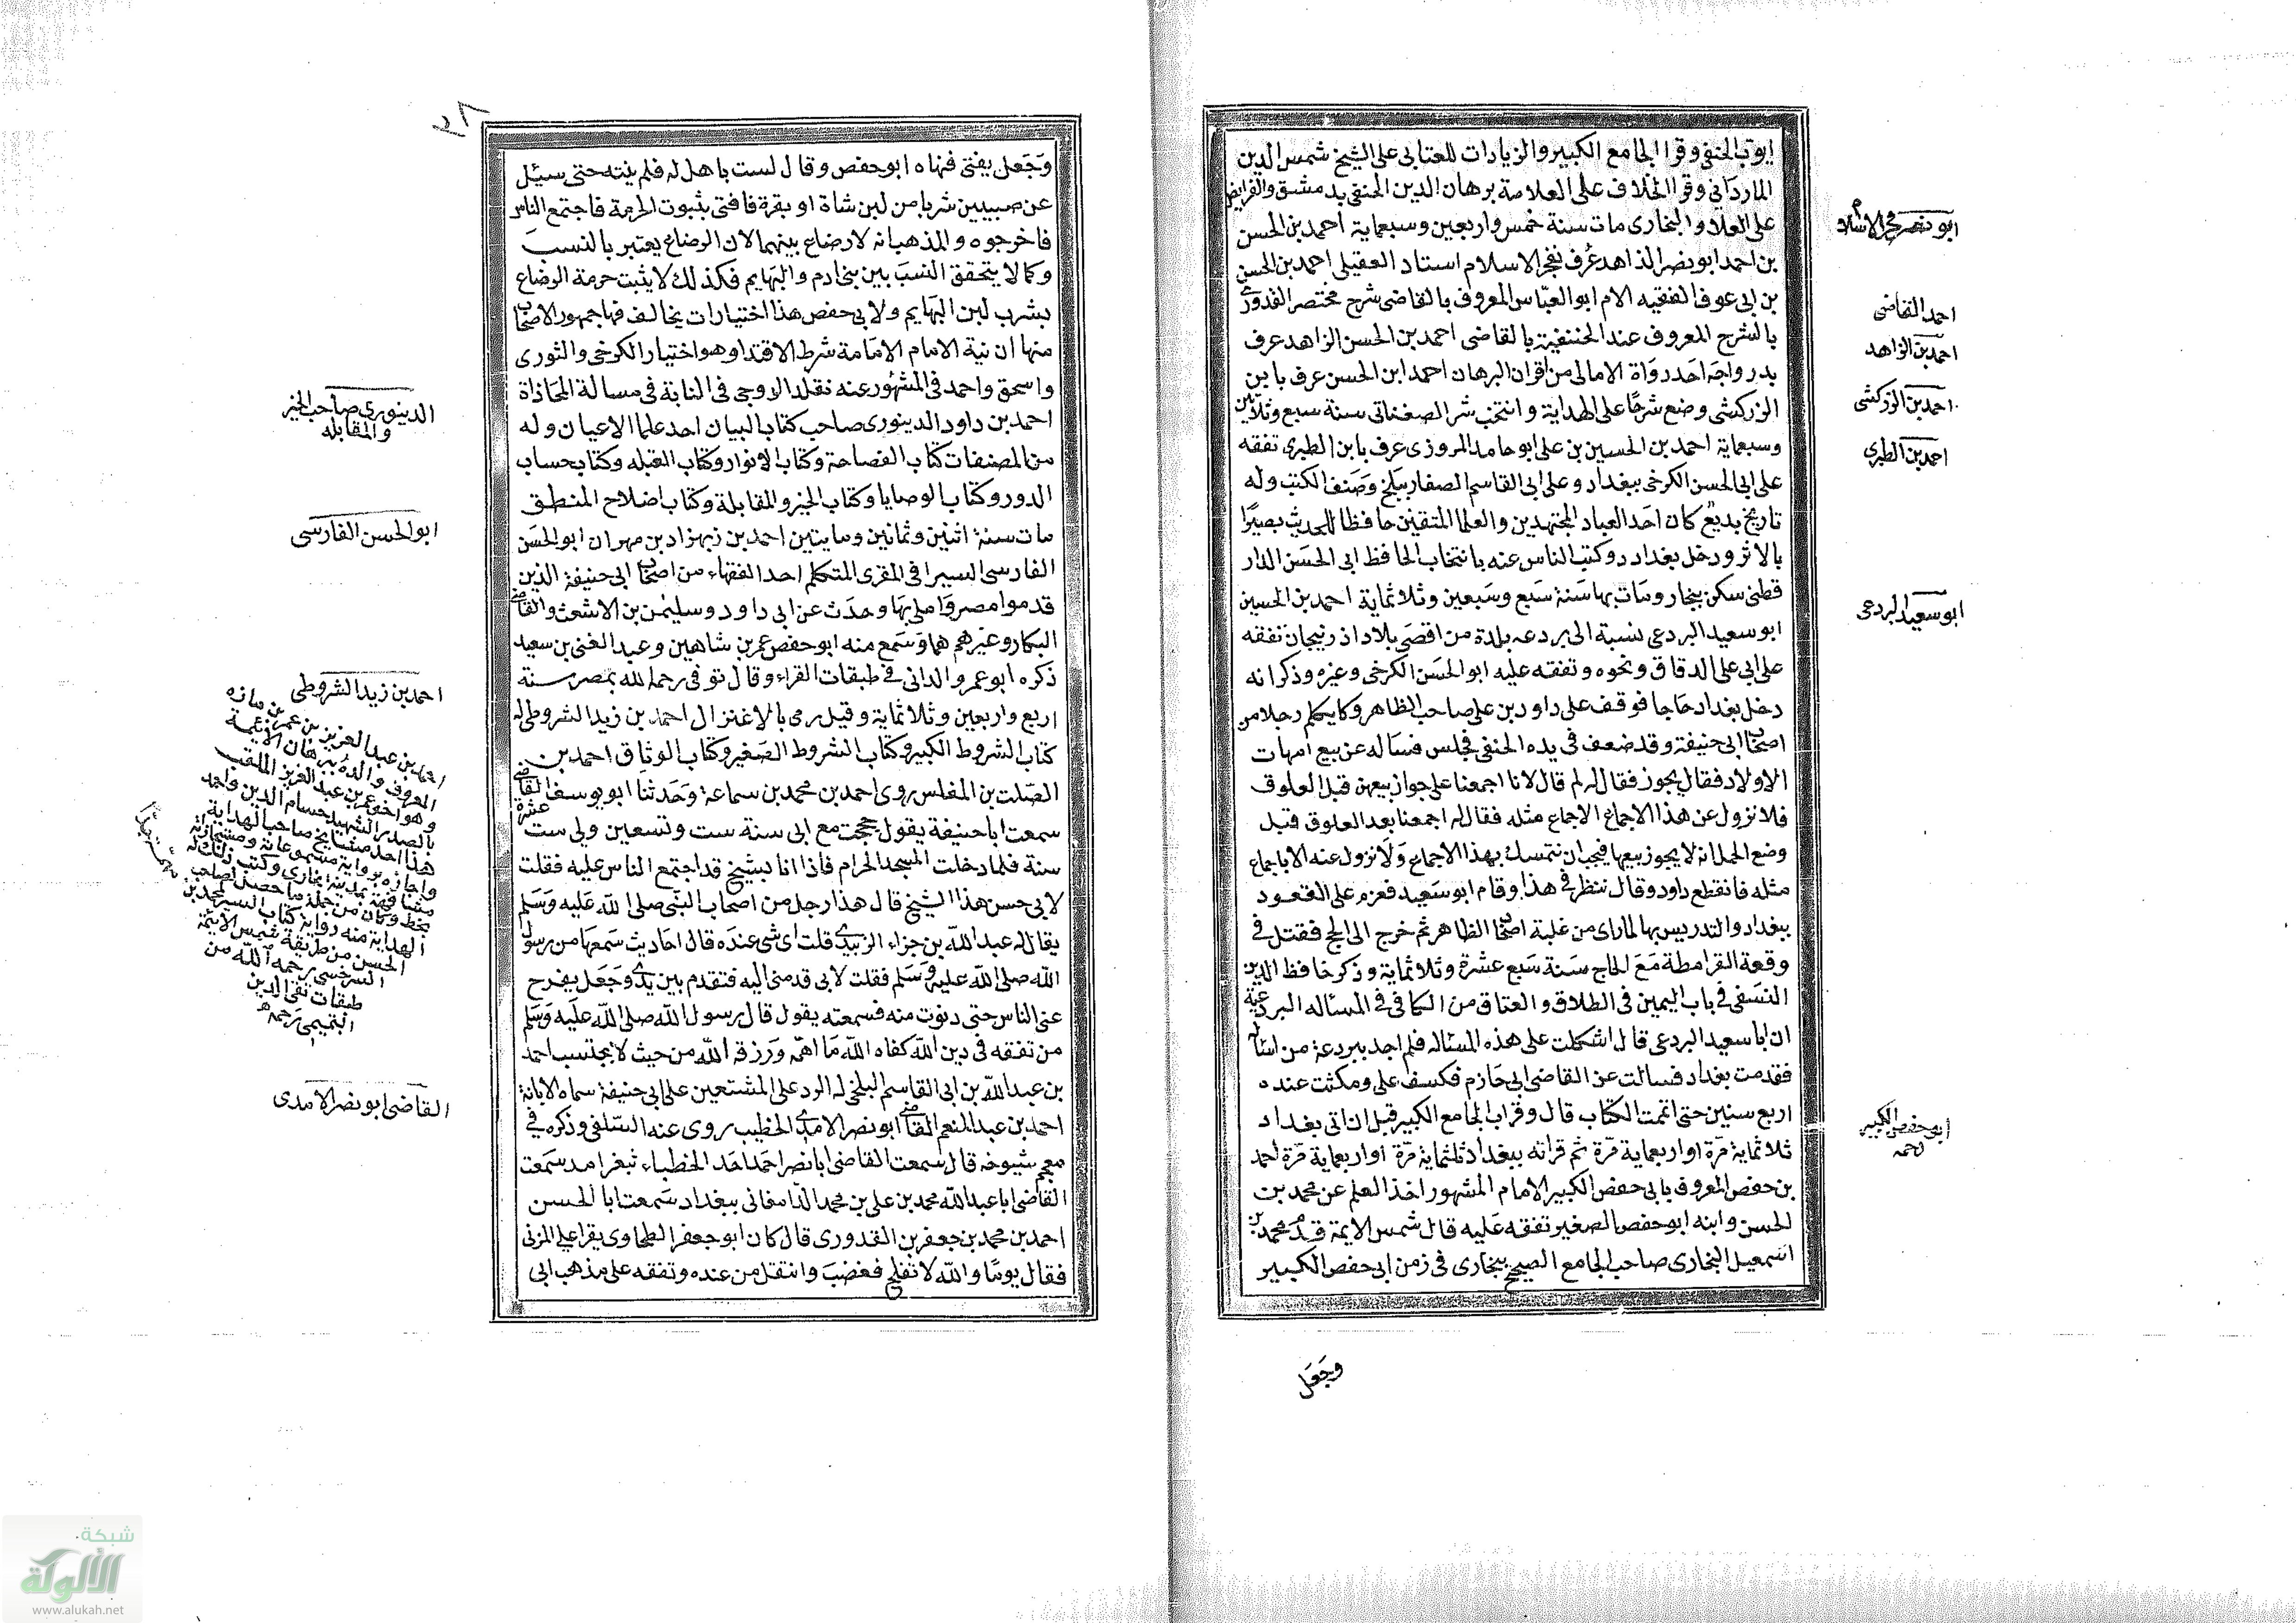 ايوب الحنفى وقرا الجامع الكبير والزيادات للعتابى على الشيخ شمس الدين
الماردانى وقرا الخلاف على العلامة برهان الدين الحنفى بدمشق والفرايض
على العلاء والبخارى مات سنة خمس واربعين وسبعماية احمد بن الحسن
بن احمد ابو نصر الزاهد عرف بفخر الاسلام استاد العقيلى احمد بن الحسن
بن ابى عوف الفقيه الامام ابو العباس المعروف بالقاضى شرح مختصر القدورى
بالشرح المعروف عند الحنفية بالقاضى احمد بن الحسن الزاهد عرف
بدرواجة احد رواة الامالى من اقران البرهان احمد ابن الحسن عرف بابن
الزركشى وضع شرحًا على الهداية وانتخب شر الصغناتى سنة سبع وثلاثين
وسبعماية احمد بن الحسين بن على ابو حامد المروزى عرف بابن الطبرى تفقه
على ابى الحسن الكرخى ببغداد وعلى ابى القاسم الصفار ببلخ وصنف الكتب وله
تاريخ بديع كان احد العباد المجتهدين والعلما المتقين حافظا للحديث بصيرًا
بالاثر ودخل بغداد وكتب الناس عنه بانتخاب الحافظ ابى الحسن الدار
قطنى سكن بخار ومات بها سنة سبع وسبعين وثلاثماية احمد بن الحسين
ابو سعيد البردعى نسبة الى بردعه بلدة من اقصى بلاد اذربيجان تفقه
على ابى على الدقاق ونحوه وتفقه عليه ابو الحسن الكرخى وغيره وذكر انه
دخل بغداد حاجا فوقف على داود بن على صاحب الظاهر وكا يكلم رجلا من
اصحاب ابى حنيفة وقد ضعف فى يده الحنفى فجلس فساله عن بيع امهات
الاولاد فقال يجوز فقال له لم قال لانا اجمعنا على جواز بيعهن قبل العلوق
فلا نزول عن هذا الاجماع الا جماع مثله فقال له اجمعنا بعد العلوق قبل
وضع الحمل انه لا يجوز بيعها فيجب ان نتمسك بهذا الاجماع ولا نزول عنه الا باجماع
مثله فانقطع داود وقال ننظر فى هذا وقام ابو سعيد فعزم على القعود
ببغداد والتدريس بها لما راى من غلبة اصحاب الظاهر ثم خرج الى الحج فقتل فى
وقعة القرامطة مع الحاج سنة سبع عشرة وثلاثماية وذكر حافظ الدين
النسفى فى باب اليمين فى الطلاق والعتاق من الكافى فى المساله البردعية
ان ابا سعيد البردعى قال اشكلت على هذه المساله فلم اجد ببردعة من اساله
فقدمت بغداد فسالت عن القاضى ابى حازم فكسف على ومكثت عنده
اربع سنين حتى اتممت الكتاب قال وقراب الجامع الكبير قبل ان اتى بغداد
ثلاثماية مرة او اربعماية مرة ثم قراته ببغداد ثلثماية مرة او اربعماية مرة احمد
بن حفص المعروف بابى حفص الكبير الامام المشهور اخذ العلم عن محمد بن
الحسن وابنه ابو حفص الصغير تفقه عليه قال شمس الايمة قدم محمد بن
اسمعيل البخارى صاحب الجامع الصحيح ببخارى فى زمن ابى حفص الكبير
وجعل
ابو نصر فخر الاسلام
احمد القاضى
احمد بن الزاهد
احمد بن الزركشى
احمد بن الطبرى
ابو سعيد البردعى
ابو حفص الكبير
رحمه
٢٨
وجعل يفتى فنهاه ابو حفص وقال لست باهل له فلم ينته حتى سيئل
عن صبيين شربا من لبن شاة او بقرة فافتى بثبوت الحرمة فاجتمع الناس
فاخرجوه والمذهب انه لا رضاع بينهما لان الرضاع يعتبر بالنسب
وكما لا يتحقق النسب بين بنى ادم والبهايم فكذلك لا يثبت حرمة الرضاع
بشرب لبن البهايم ولابى حفص هذا اختيارات يخالف فيها جمهور الاصحاب
منها ان نية الامام الامامة شرط الاقتدا وهو اختيار الكرخى والثورى
واسحق واحمد فى المشهور عنه نقلد الزوجى فى النابة فى مسالة المحاذاة
احمد بن داود الدينورى صاحب كتاب البيان احد علما الاعيان وله
من المصنفات كتاب الفصاحة وكتاب الانوار وكتاب القبله وكتاب حساب
الدور وكتاب الوصايا وكتاب الجبر والمقابلة وكتاب اصلاح المنطق
مات سنة اثنين وثمانين ومايتين احمد بن زبهزاد بن مهران ابو الحسن
الفارسى السيرافى المقرى المتكلم احد الفقهاء من اصحاب ابى حنيفة الذين
قدموا مصر واملى بها وحدث عن ابى داود وسليمن بن الاشعث والقاضى
البكار وغيرهم هما وسمع منه ابو حفص عمر بن شاهين وعبد الغنى بن سعيد
ذكره ابو عمرو الدانى فى طبقات القراء وقال توفى رحمه الله بمصر سنة
اربع واربعين وثلاثماية وقيل رمى بالاغتزال احمد بن زيد الشروطى له
كتاب الشروط الكبير وكتاب الشروط الصغير وكتاب الوثاق احمد بن
الصلت بن المغلس روى احمد بن محمد بن سماعة وحدثنا ابو يوسف القاضى
سمعت ابا حنيفة يقول حججت مع ابى سنة ست وتسعين ولى ست عشرة
سنة فلما دخلت المسجد الحرام فاذا انا بشيخ قد اجتمع الناس عليه فقلت
لابى حسن هذا الشيخ قال هذا رجل من اصحاب النبى صلى الله عليه وسلم
يقال له عبد الله بن جزاء الزبيدى قلت اى شى عنده قال احاديث سمعها من رسول
الله صلى الله عليه وسلم فقلت لابى قدمنى اليه فتقدم بين يدى وجعل يفرح
عنى الناس حتى دنوت منه فسمعته يقول قال رسول الله صلى الله عليه وسلم
من تفقه فى دين الله كفاه الله ما اهمه ورزقه الله من حيث لا يحتسب احمد
بن عبد الله بن ابى القاسم البلخى له الرد على المشتعين على ابى حنيفة سماه الابانة
احمد بن عبد المنعم القاضى ابو نصر الامدى الخطيب روى عنه السلفى وذكره فى
معجم شيوخه قال سمعت القاضى ابا نصر احمد احد الخطباء ثبغر امد سمعت
القاضى ابا عبد الله محمد بن على بن محمد الدامغانى ببغداد سمعت ابا الحسن
احمد بن محمد بن جعفر بن القدورى قال كان ابو جعفر الطحاوى يقرا على المزنى
فقال يوما والله لا تفلح فغضب وانتقل من عنده وتفقه على مذهب ابى
الدينورى صاحب الجبر
والمقابله
ابو الحسن الفارسى
احمد بن زيد الشروطى
احمد بن عبد العزيز بن عمر بن مازه
المعروف والده ببرهان الايمة
وهو اخو عمر بن عبد العزيز الملقب
بالصدر الشهيد حسام الدين واحمد
هذا احد مشايخ صاحب الهداية
واجازه برواية مسموعاته ومستجازاته
مشافهة بمدينة بخارى وكتب ذلك له
بخطه وكان من جملة ما حصل لصاحب
الهداية منه رواية كتاب السير لمحمد بن
الحسن من طريقة شمس الايمة
السرخسى رحمه الله من
طبقات تقى الدين
التميمى رحمه
القاضى ابو نصر الامدى
شبكة
الألوكة
www.alukah.net